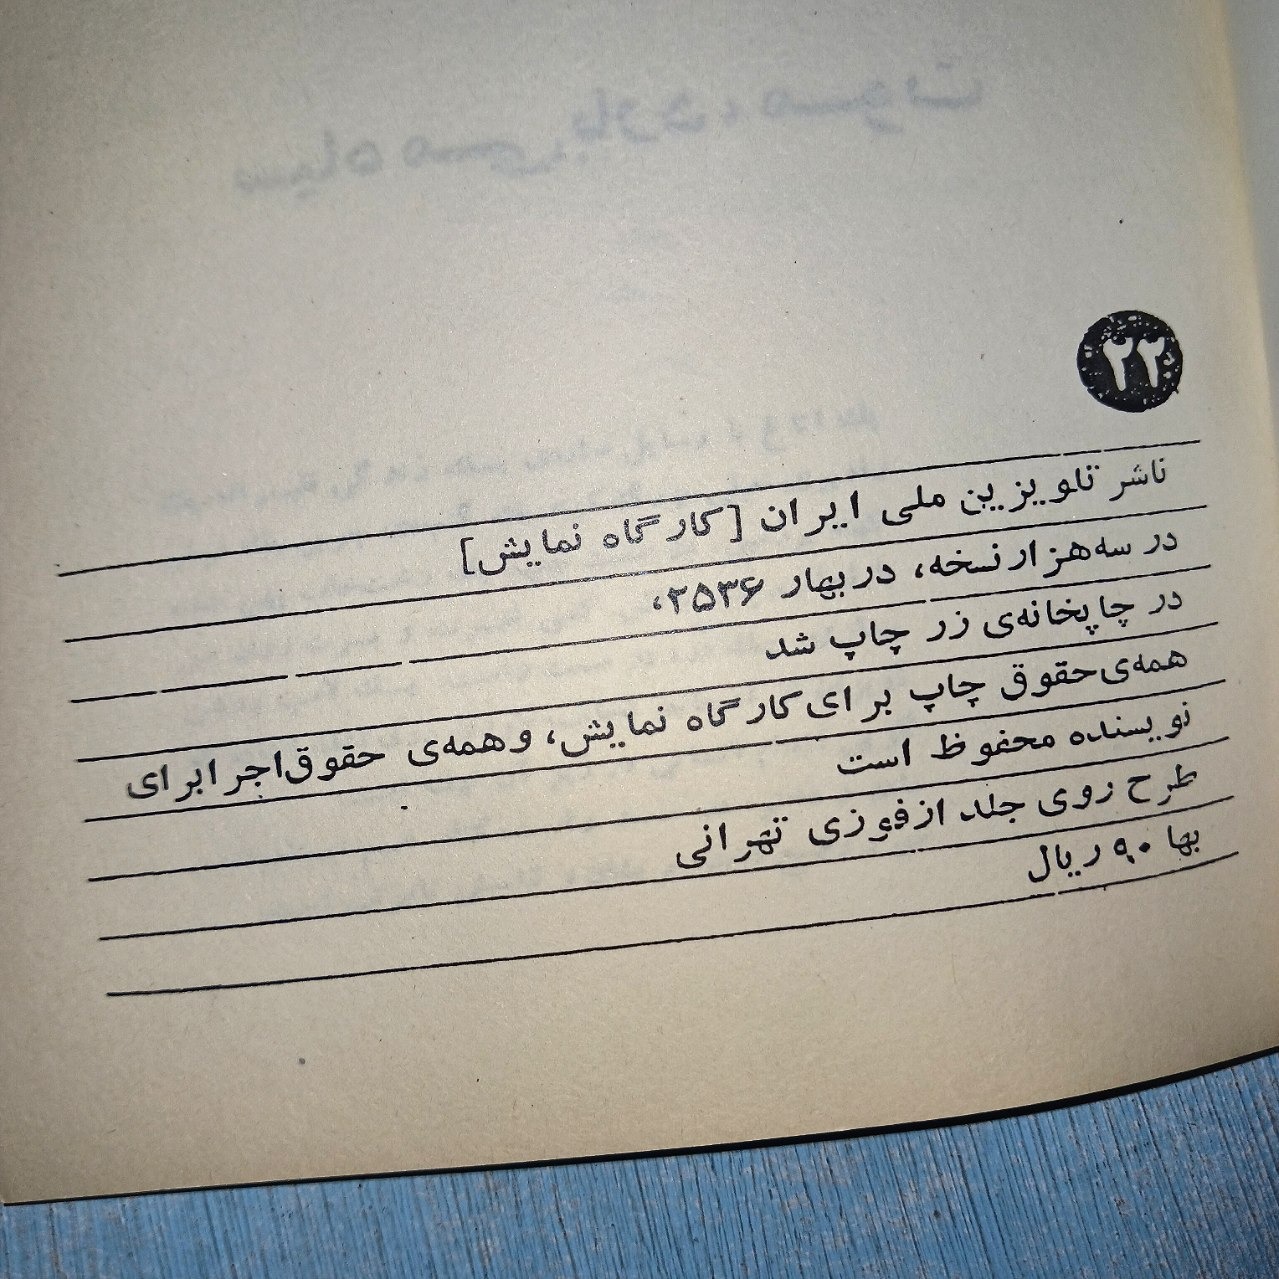 ۲۲
ناشر تلویزیون ملی ایران [کارگاه نمایش]
در سه هزار نسخه، در بهار ۲۵۳۶،
در چاپخانه‌ی زر چاپ شد
همه‌ی حقوق چاپ برای کارگاه نمایش، و همه‌ی حقوق اجرا برای
نویسنده محفوظ است
طرح روی جلد از فوزی تهرانی
بها ۹۰ ریال